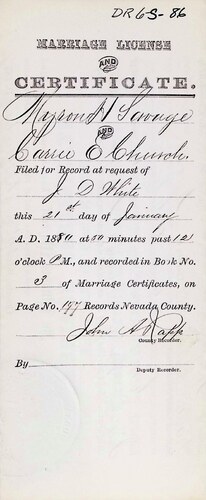 DR65-86
MARRIAGE LICENSE
AND
CERTIFICATE.
Myron H Savage
AND
Carrie E Church.
Filed for Record at request of
J D White
this 21st day of January
A. D. 1880 at 50 minutes past 12
o'clock P M., and recorded in Book No.
3 of Marriage Certificates, on
Page No. 197 Records Nevada County.
John A Rapp
County Recorder.
By
Deputy Recorder.